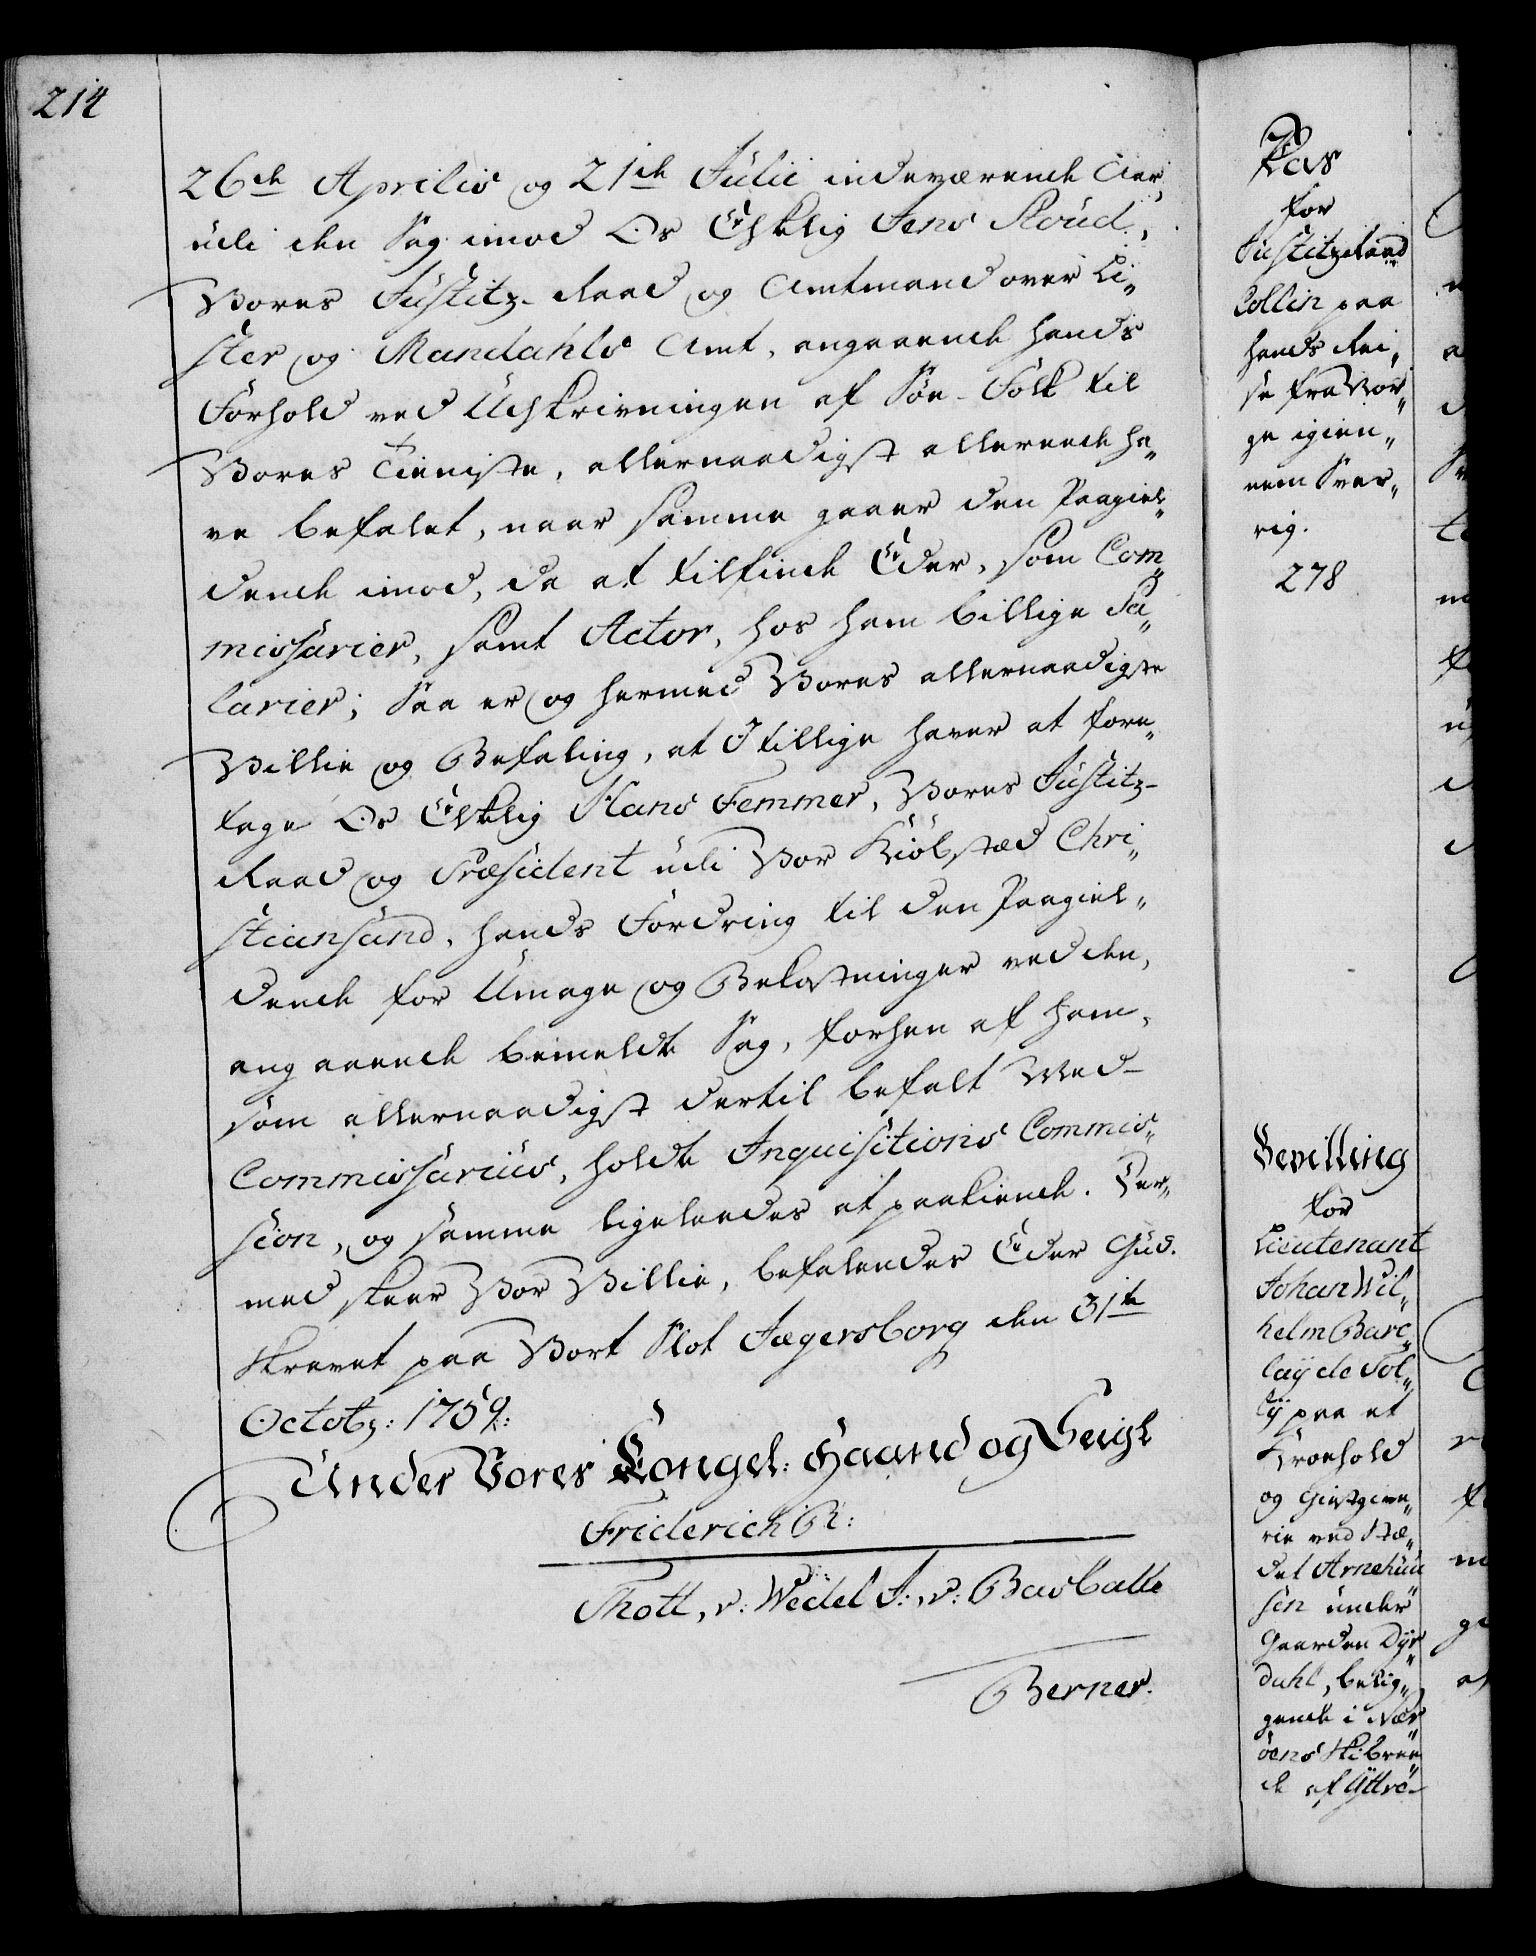 214
26de Aprilis og 21de Julii indeværende Aar,
udi den Sag imod Os Elskelig Jens Stoud,
Vores Justitz-Raad og Amtmand over Li„
ster og Mandahls Amt, angaaende hands
Forhold ved Udskrivningen af Søe-Folk til
Vores Tieniste, allernaadigst allerede ha„
ve befalet, naar samme gaaer den Paagiel„
dende imod, da at tilfinde Eder, som Com„
missarier, samt Actor, hos ham billige Sa„
larier; Saa er og hermed Vores allernaadigste
Villie og Befaling, at I tillige haver at fore„
tage Os Elskelig Hans Femmer, Vores Justitz-
Raad og Præsident udi Vor Kiøbstæd Chri„
stiansand, hands Fordring til den Paagiel„
dende for Umage og Bekostninger ved den,
angaaende bemeldte Sag, forhen af ham,
som allernaadigst dertil befalt Med-
Commissarius, holdte Inquisitions Commis„
sion, og samme ligeleedes at paakiende. Der„
med skeer Vor Villie, befalendes Eder Gud.
Skrevet paa Vort Slot Jægersborg den 31te
Octobr: 1759:
Under Vores Kongel: Haand og Seigl
Friderich R:
Thott, v: Wedel F:, v: Basballe
Berner.
Pas
for
Justitzraad
Collin paa
hands Rei„
se fra Nor„
ge igien„
nem Sver„
rig.
278
Bevilling
for
Lieutenant
Johan Wil„
helm Barc„
laÿ de Tol„
lÿ paa et
Kroehold
og Giestgive„
rie ved Stæ„
det Arnehuu
sen under
Gaarden Dÿr
dahl, belig„
gende i Nær
öens Skibree
de af Ÿttre